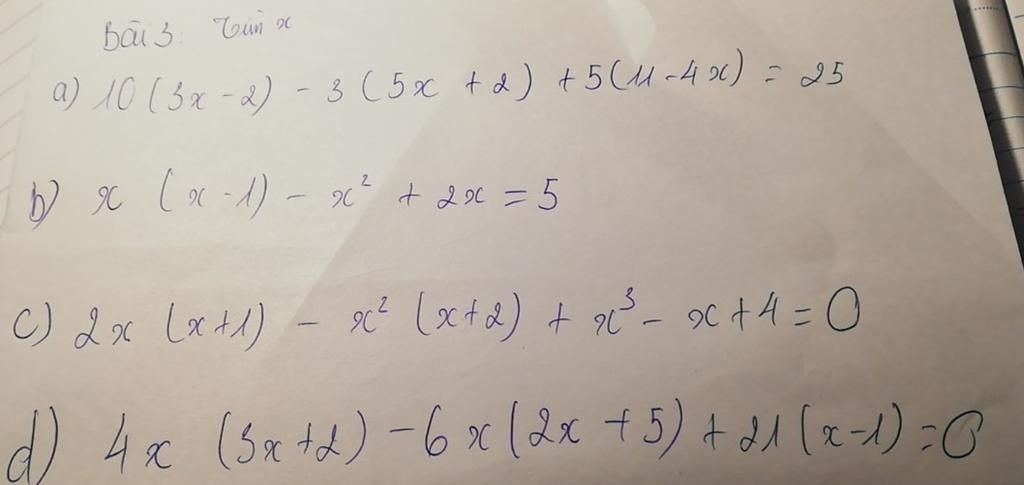 Bài 3: Tìm x
a) 10 (3x - 2) - 3 (5x + 2) + 5 (11 - 4x) = 25
b) x (x - 1) - x² + 2x = 5
c) 2x (x+1) - x² (x+2) + x³ - x + 4 = 0
d) 4x (3x+2) - 6x (2x + 5) + 21 (x-1) = 0